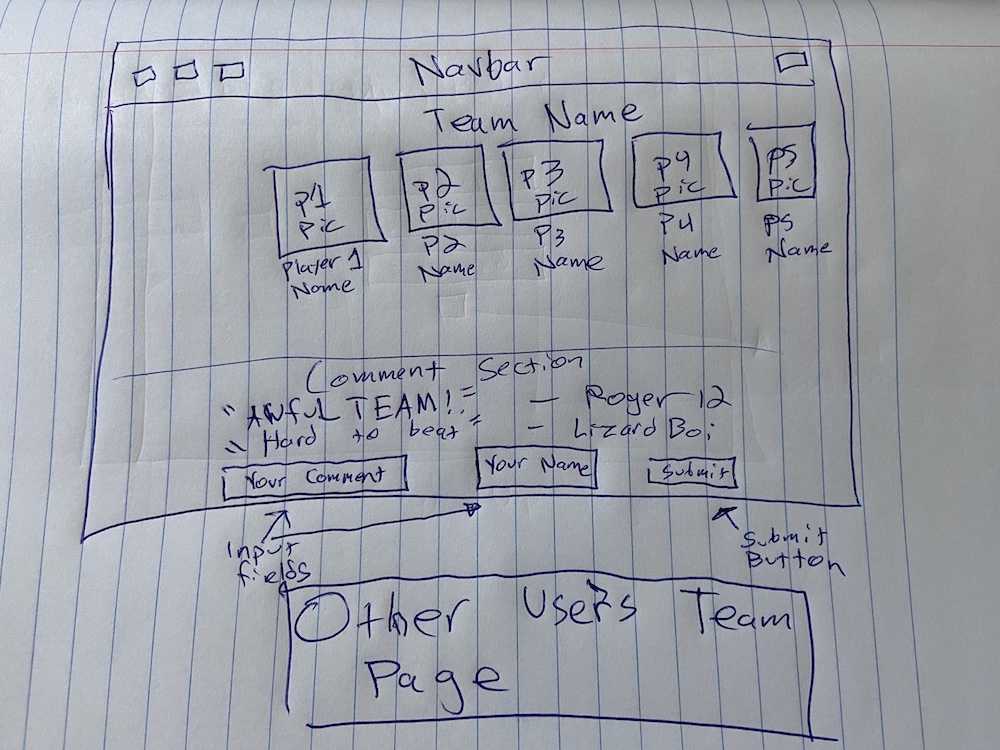 Navbar
Team Name
P1 Pic
P2 Pic
P3 Pic
P4 Pic
P5 Pic
Player 1 Name
P2 Name
P3 Name
P4 Name
P5 Name
Comment Section
"AWfuL TEAM!!" - Roger 12
"Hard to beat" - Lizard Boi
Your Comment
Your Name
Submit
Input fields
Submit Button
Other Users Team
Page